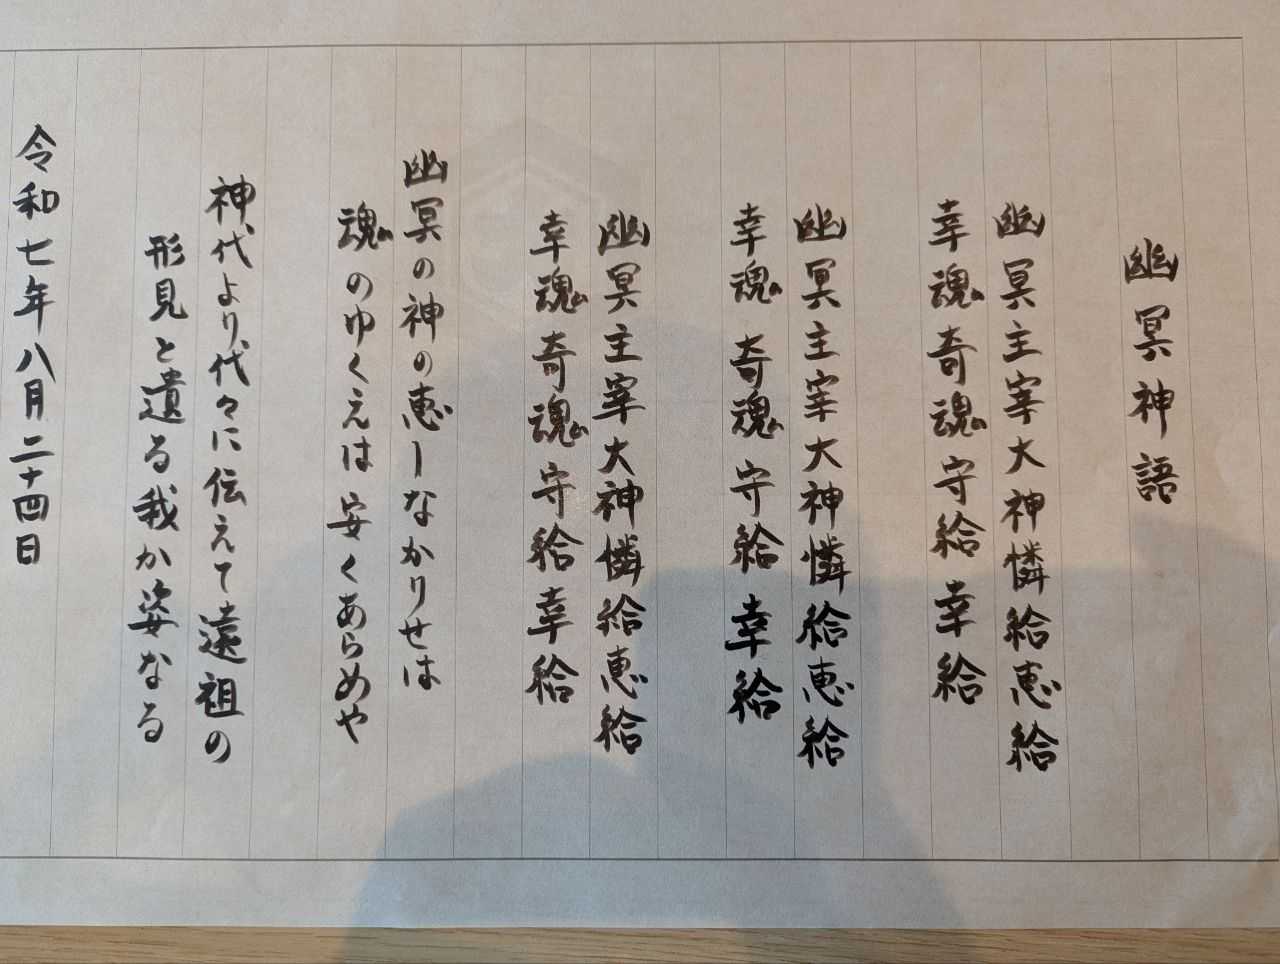 幽冥神語
幽冥主宰大神憐給恵給
幸魂奇魂守給幸給
幽冥主宰大神憐給恵給
幸魂奇魂守給幸給
幽冥主宰大神憐給恵給
幸魂奇魂守給幸給
幽冥の神の恵しなかりせは
魂のゆくえは安くあらめや
神代より代々に伝えて遠祖の
形見と遺る我か姿なる
令和七年八月二十四日